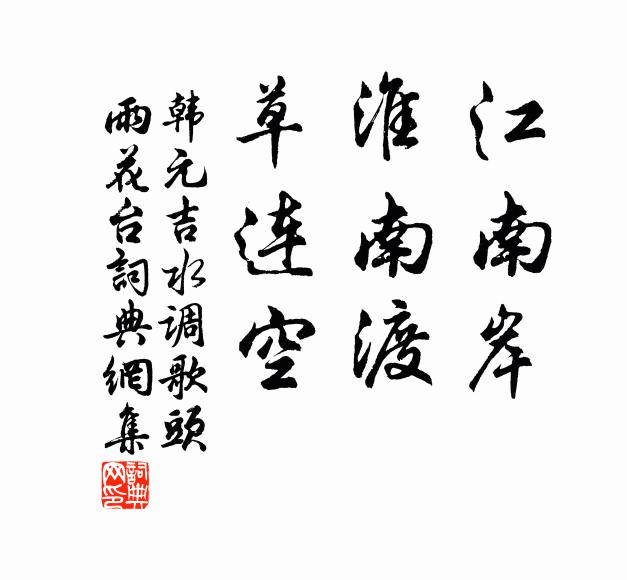 江南岸
淮南渡
草连空
韩元吉水调歌頭
雨花台詞典網集
詞典网印